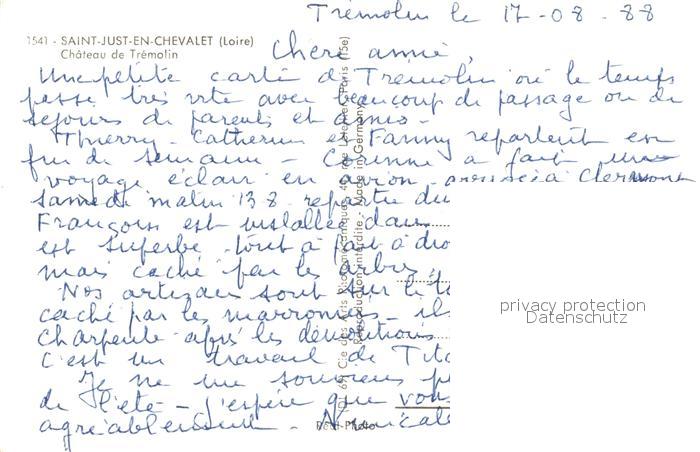 Trémolin le 17-08-88
1541 - SAINT-JUST-EN-CHEVALET (Loire)
Château de Trémolin
Chère amie,
Une petite carte de Trémolin où le temps
passe très vite avec beaucoup de passage ou de
séjours de parents et amis -
Thierry - Catherine et Fanny repartent en
fin de semaine - Corinne a fait un
voyage éclair en avion - arrivée à Clermont
samedi matin 13 8 repartie du
François est installée dans
est superbe tout à fait à dro
mais caché par les arbres,
Nos artisans sont sur le t
caché par les marronniers - ils
charpente après les démolitions
c'est un travail de Tita
Je ne me souviens p
de l'été - j'espère que vous
agréablement - Amicale
privacy protection
Datenschutz
Cie des Arts Photomécaniques, 4 (15e)
Reproduction interdite - Made in Germany
Real-Photo